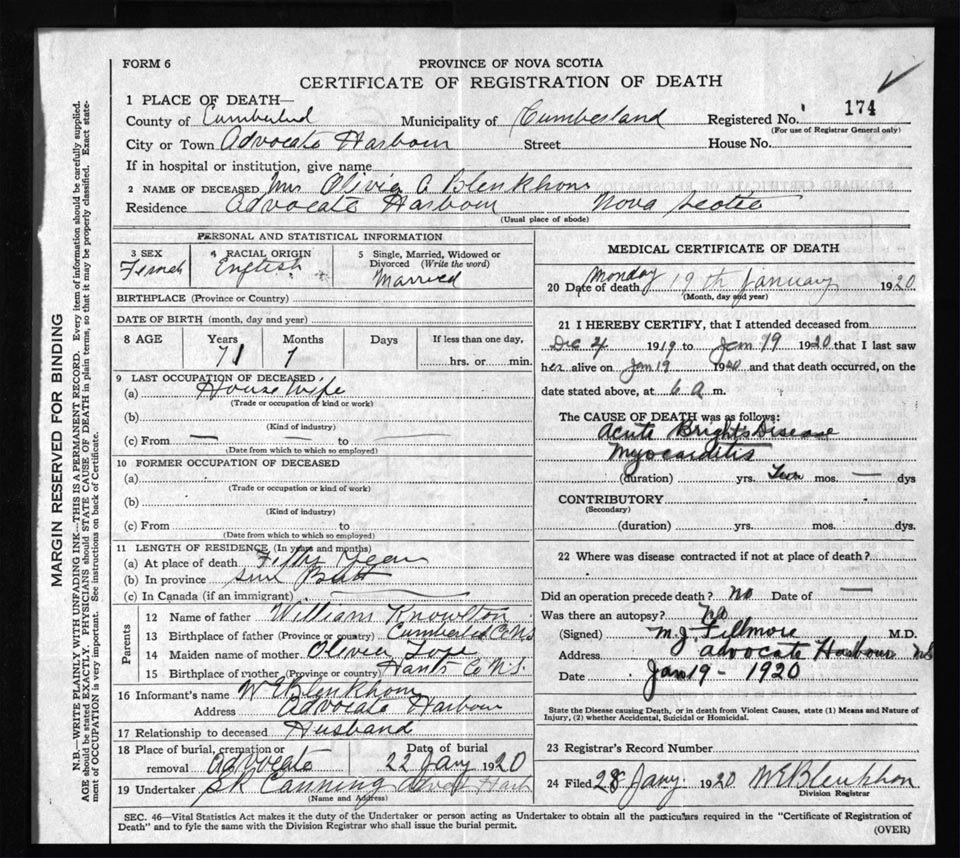 FORM 6
PROVINCE OF NOVA SCOTIA
CERTIFICATE OF REGISTRATION OF DEATH
1 PLACE OF DEATH—
County of Cumberlnd Municipality of Cumberland Registered No. 174
(For use of Registrar General only)
City or Town Advocate Harbour Street House No.
If in hospital or institution, give name
2 NAME OF DECEASED Mrs Olivia A Blenkhorn
Residence Advocate Harbour Nova Scotia
(Usual place of abode)
PERSONAL AND STATISTICAL INFORMATION
3 SEX 4 RACIAL ORIGIN 5 Single, Married, Widowed or
Divorced (Write the word)
Femal English Married
BIRTHPLACE (Province or Country)
DATE OF BIRTH (month, day and year)
8 AGE Years Months Days If less than one day,
71 7 hrs. or min.
9 LAST OCCUPATION OF DECEASED
(a) House wife
(Trade or occupation or kind or work)
(b)
(Kind of industry)
(c) From — to —
(Date from which to which so employed)
10 FORMER OCCUPATION OF DECEASED
(a)
(Trade or occupation or kind of work)
(b)
(Kind of industry)
(c) From to
(Date from which to which so employed)
11 LENGTH OF RESIDENCE (In years and months)
(a) At place of death Fifty Years
(b) In province
(c) In Canada (if an immigrant)
Parents
12 Name of father William Knowlton
13 Birthplace of father (Province or country) Cumberlnd Co NS
14 Maiden name of mother Olivia
15 Birthplace of mother (Province or country) Hants Co N.S.
16 Informant's name W E Blenkhorn
Address Advocate Harbour
17 Relationship to deceased Husband
18 Place of burial, cremation or Date of burial
removal Advocate 22 Jany 1920
19 Undertaker Canning Advocate Harb
(Name and Address)
MEDICAL CERTIFICATE OF DEATH
20 Date of death Monday 19th January 1920
(Month, day and year)
21 I HEREBY CERTIFY, that I attended deceased from
Dec 4 1919 to Jan 19 1920 that I last saw
her alive on Jan 19 1920 and that death occurred, on the
date stated above, at 6 a m.
The CAUSE OF DEATH was as follows:
Acute Brights Disease
Myocarditis
(duration) yrs. mos. — dys
CONTRIBUTORY
(Secondary)
(duration) yrs. mos. dys.
22 Where was disease contracted if not at place of death?
Did an operation precede death? No Date of —
Was there an autopsy? No
(Signed) M.J. Fillmore M.D.
Address Advocate Harbour NS
Date Jan 19 - 1920
State the Disease causing Death, or in death from Violent Causes, state (1) Means and Nature of
Injury, (2) whether Accidental, Suicidal or Homicidal.
23 Registrar's Record Number
24 Filed 28 Jany. 1920 W E Blenkhon
Division Registrar
SEC. 46—Vital Statistics Act makes it the duty of the Undertaker or person acting as Undertaker to obtain all the particulars required in the "Certificate of Registration of
Death" and to fyle the same with the Division Registrar who shall issue the burial permit.
(OVER)
MARGIN RESERVED FOR BINDING
N.B.—WRITE PLAINLY WITH UNFADING INK—THIS IS A PERMANENT RECORD. Every item of information should be carefully supplied.
AGE should be stated EXACTLY. PHYSICIANS should STATE CAUSE OF DEATH in plain terms, so that it may be properly classified. Exact state-
ment of OCCUPATION is very important. See instructions on back of Certificate.